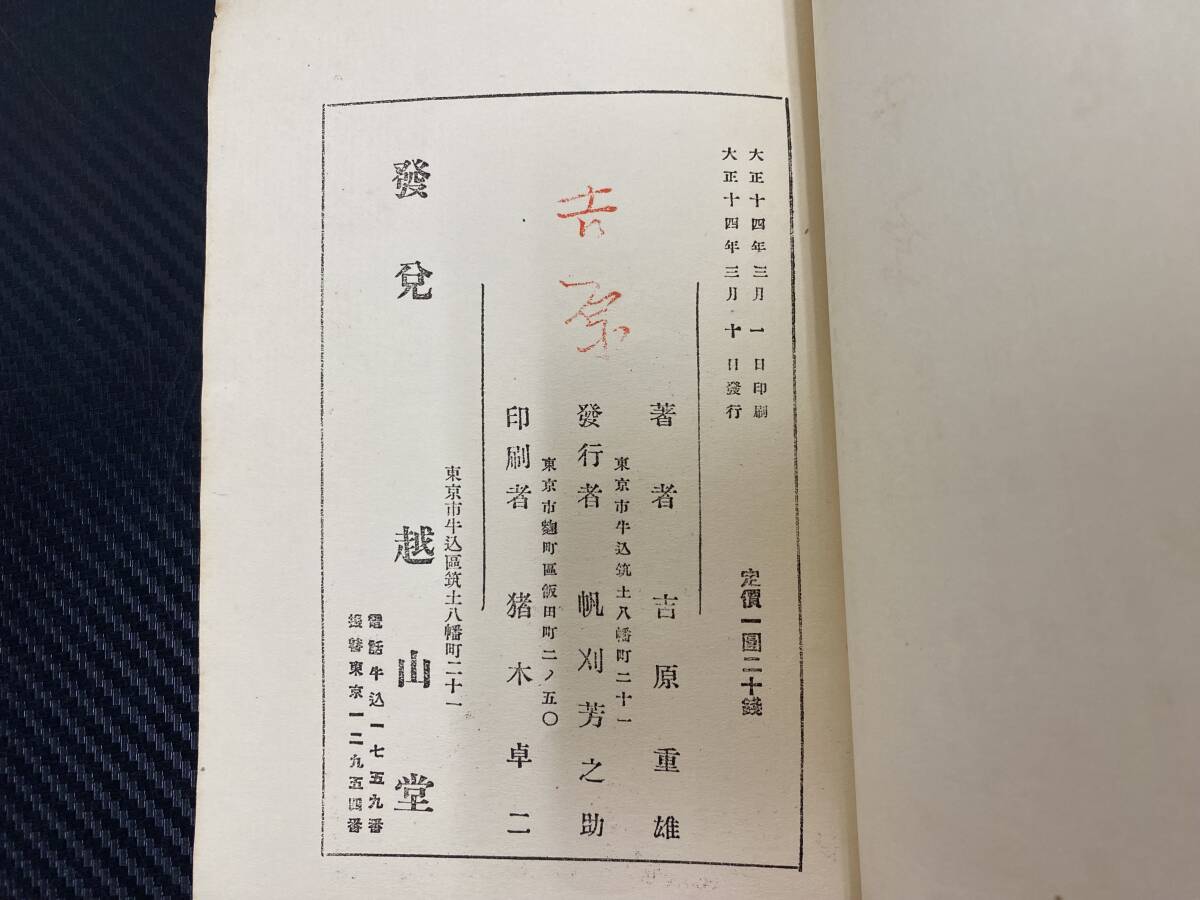 大正十四年三月一日印刷
大正十四年三月十日發行
定價一圓二十錢
著者 吉原重雄
東京市牛込筑土八幡町二十一
發行者 帆刈芳之助
東京市麴町區飯田町二ノ五〇
印刷者 猪木卓二
吉原
東京市牛込區筑土八幡町二十一
發兌 越山堂
電話牛込一七五九番
振替東京一二九五四番